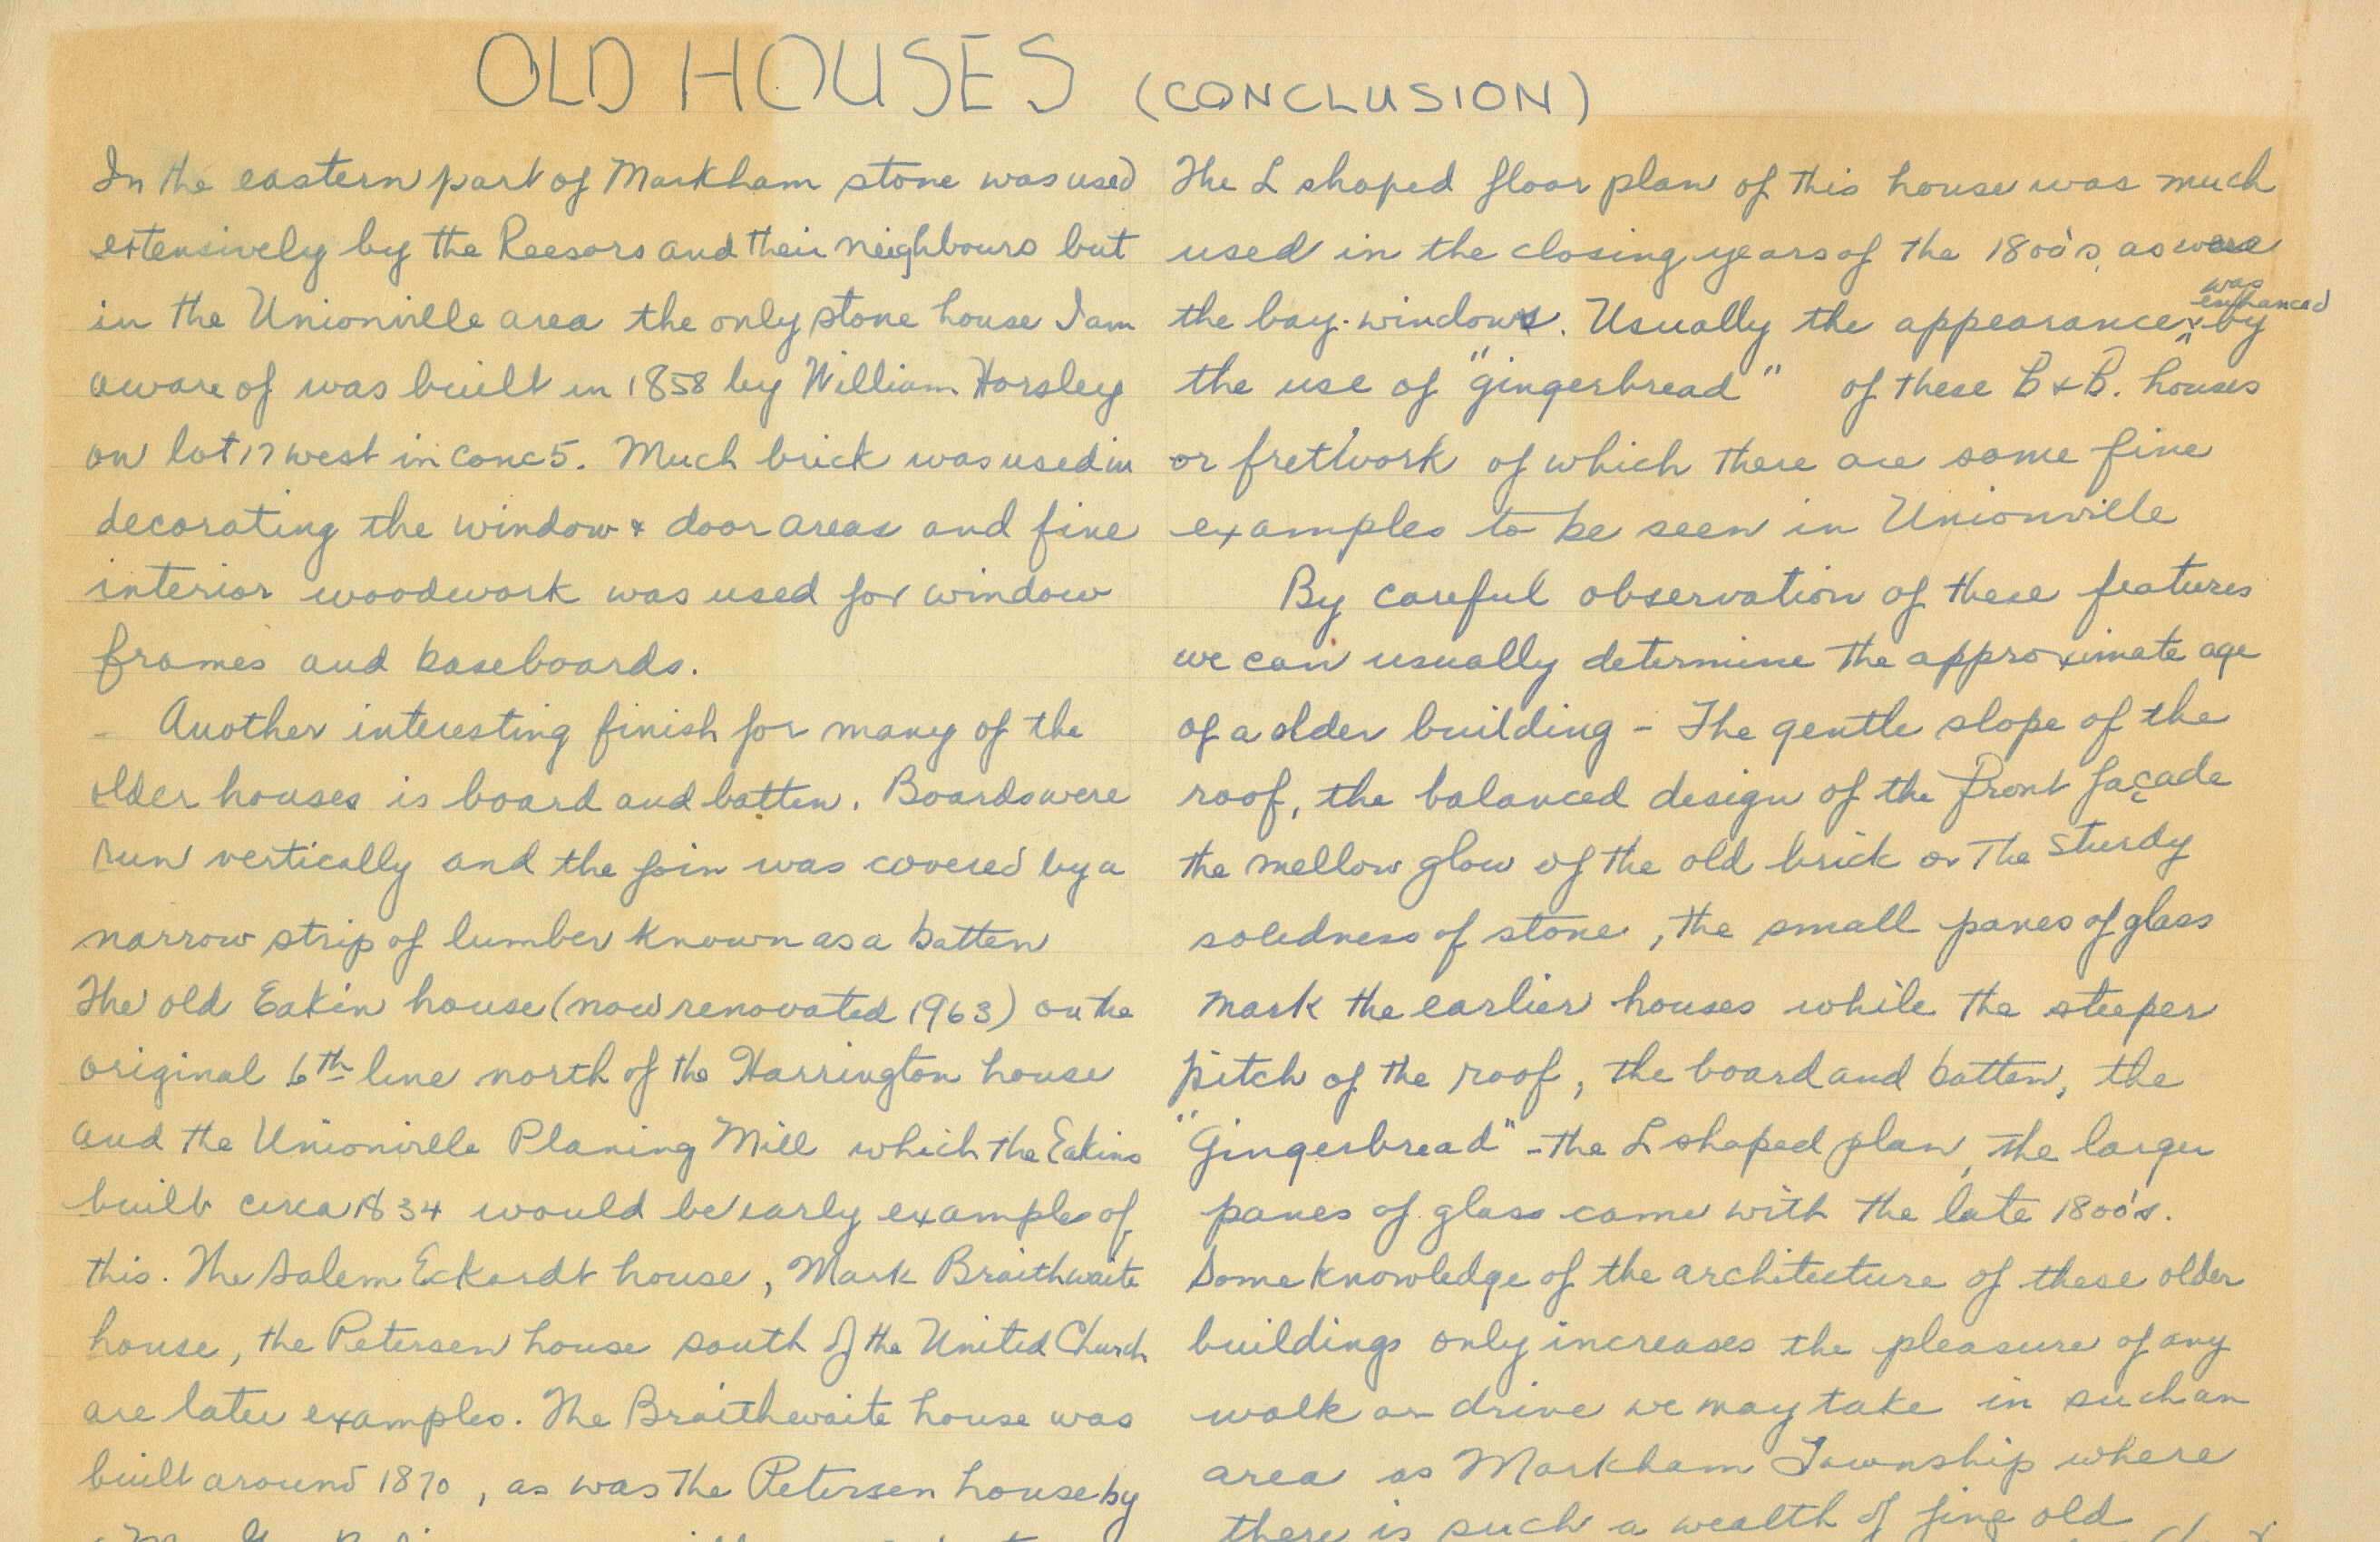 OLD HOUSES (CONCLUSION)
In the eastern part of Markham stone was used
extensively by the Reesors and their neighbours but
in the Unionville area the only stone house I am
aware of was built in 1858 by William Horsley
on lot 17 west in conc 5. Much brick was used in
decorating the window & door areas and fine
interior woodwork was used for window
frames and baseboards.
- Another interesting finish for many of the
older houses is board and batten. Boards were
run vertically and the join was covered by a
narrow strip of lumber known as a batten
The old Eakin house (now renovated 1963) on the
original 6th line north of the Harrington house
and the Unionville Planing Mill which the Eakins
built circa 1834 would be early examples of
this. The Salem Eckardt house, Mark Braithwaite
house, the Petersen house south of the United Church
are later examples. The Braithewaite house was
built around 1870, as was the Petersen house by
The L shaped floor plan of this house was much
used in the closing years of the 1800's, as were
the bay-windows. Usually the appearance was enhanced by
the use of "gingerbread" of these B & B. houses
or fretwork of which there are some fine
examples to be seen in Unionville
By careful observation of these features
we can usually determine the approximate age
of a older building - The gentle slope of the
roof, the balanced design of the front façade
the mellow glow of the old brick or The sturdy
solidness of stone, the small panes of glass
mark the earlier houses while the steeper
pitch of the roof, the board and batten, the
"Gingerbread" - the L shaped plan, the larger
panes of glass came with the late 1800's.
Some knowledge of the architecture of these older
buildings only increases the pleasure of any
walk or drive we may take in such an
area as Markham Township where
there is such a wealth of fine old